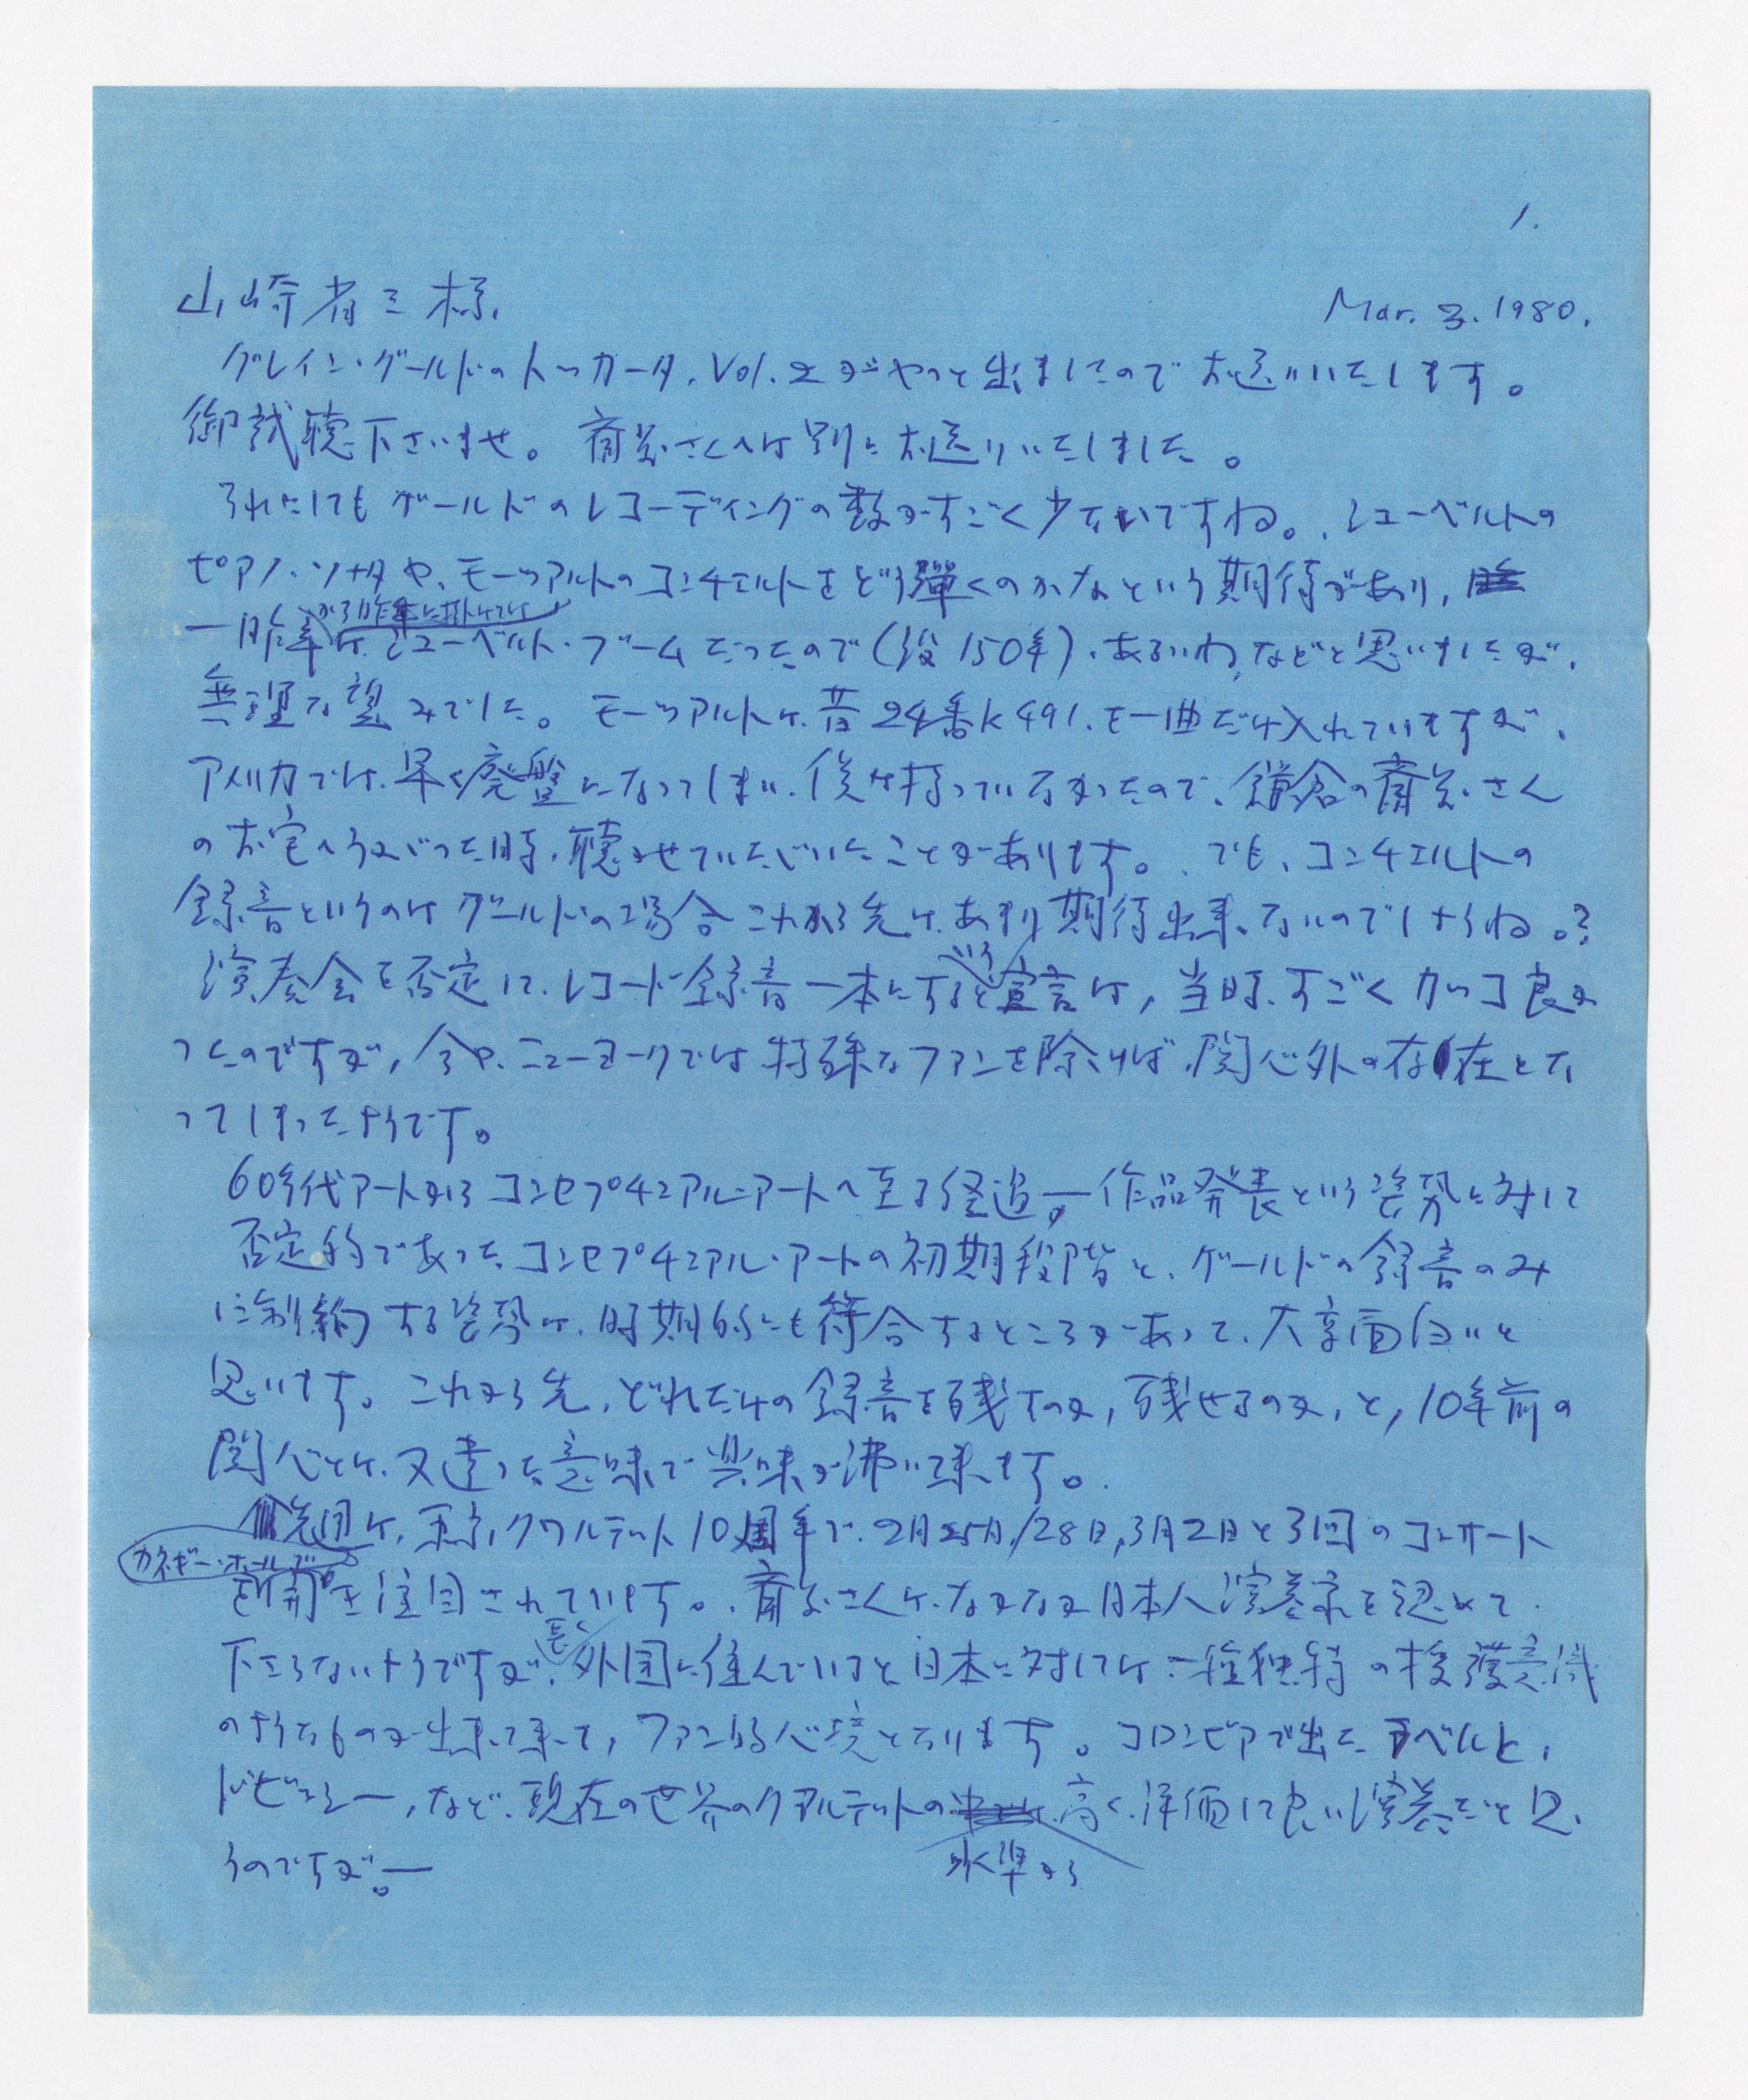 1.
山崎省三様、
Mar. 3. 1980.
グレイン・グールドのトッカータ、Vol. 2 がやっと出ましたのでお送りいたします。
御試聴下さいませ。斎藤さんへは別にお送りいたしました。
それにしてもグールドのレコーディングの数がすごく少ないですね。シューベルトの
ピアノ・ソナタや、モーツアルトのコンチェルトをどう彈くのかなという期待があり、
から昨年に掛けては
一昨年 シューベルト・ブームだったので(没150年)、あるいは、などと思いましたが、
無理な望みでした。モーツアルトは、昔24番K491、を一曲だけ入れていますが、
アメリカでは、早く廃盤になってしまい、僕は持っていなかったので、鎌倉の斎藤さん
のお宅へうかがった時、聴かせていただいたことがあります。でも、コンチェルトの
録音というのはグールドの場合これから先は、あまり期待出来ないのでしょうね。?
演奏会を否定して、レコード録音一本にすると
いう
宣言は、当時、すごくカッコ良か
ったのですが、今や、ニューヨークでは特殊なファンを除けば、関心外の存在とな
ってしまったようです。
60年代アートから コンセプチュアル・アートへ至る経過、― 作品発表という姿勢に対して
否定的であったコンセプチュアル・アートの初期段階と、グールドの録音のみ
に制約する姿勢は、時期的にも符合するところがあって、大変面白いと
思います。これから先、どれだけの録音を残すのか、残せるのか、と、10年前の
関心とは、又違った意味で興味が沸いて来ます。
先週は、東京クワルテット10周年で、2月25日/28日,3月2日と3回のコンサート
カネギー・ホールで
を開き注目されています。斎藤さんは、なかなか日本人演奏家を認めて
下さらないようですが、
長く
外国に住んでいると日本に対しては一種独特の擁護意識
のようなものが出来て来て、ファン的心境となります。コロンビアで出たラベルと、
ドビュシー、など、現在の世界のクアルテットの
水準から
高く評価して良い演奏だと思
うのですが。―